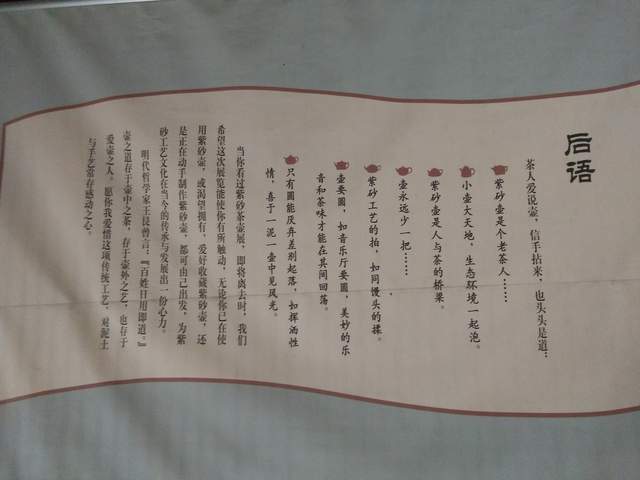 后语
茶人爱说壶，信手拈来，也头头是道：
紫砂壶是个老茶人……
小壶大天地，生态环境一起泡。
紫砂壶是人与茶的桥梁。
壶永远少一把……
紫砂工艺的拍，如同馒头的揉。
壶要圆，如音乐厅要圆，美妙的乐
音和茶味才能在其间回荡。
只有圆能厌弃差别起落，如挥洒性
情，喜于一泥一壶中见风光。
当你看过紫砂茶壶展，即将离去时，我们
希望这次展览能使你有所触动，无论你已在使
用紫砂壶，或渴望拥有，爱好收藏紫砂壶，还
是正在动手制作紫砂壶，都可由己出发，为紫
砂工艺文化在当今的传承与发展出一份心力。
明代哲学家王艮曾言：『百姓日用即道。』
壶之道存于壶中之茶，存于壶外之艺，也存于
爱壶之人。愿你我爱惜这项传统工艺，对泥土
与手艺常存感动之心。